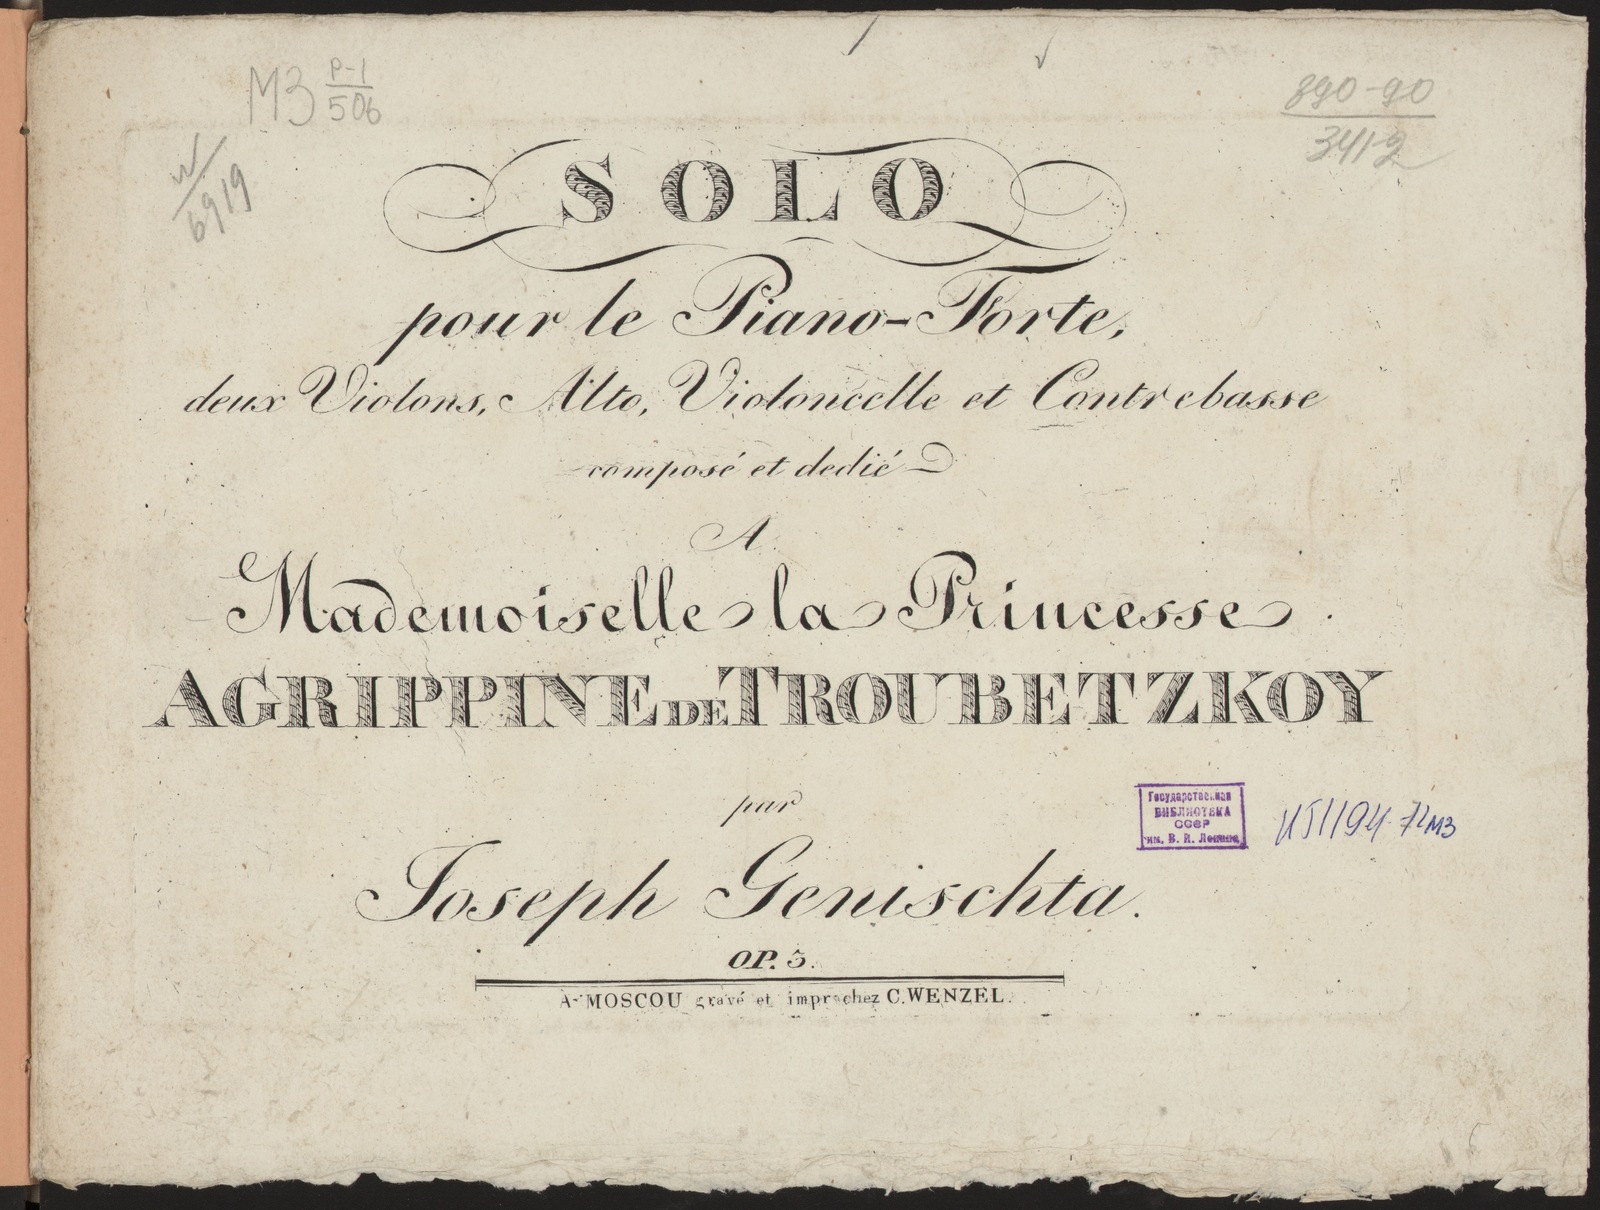 МЗ Р-1
506
890-90
3412
6919
SOLO
pour le Piano-Forte,
deux Violons, Alto, Violoncelle et Contrebasse
composé et dedié
A
Mademoiselle la Princesse
AGRIPPINE DE TROUBETZKOY
par
Государственная
БИБЛИОТЕКА
СССР
им. В. И. Ленина
Joseph Genischta.
OP. 5.
A MOSCOU gravé et impr chez C. WENZEL.